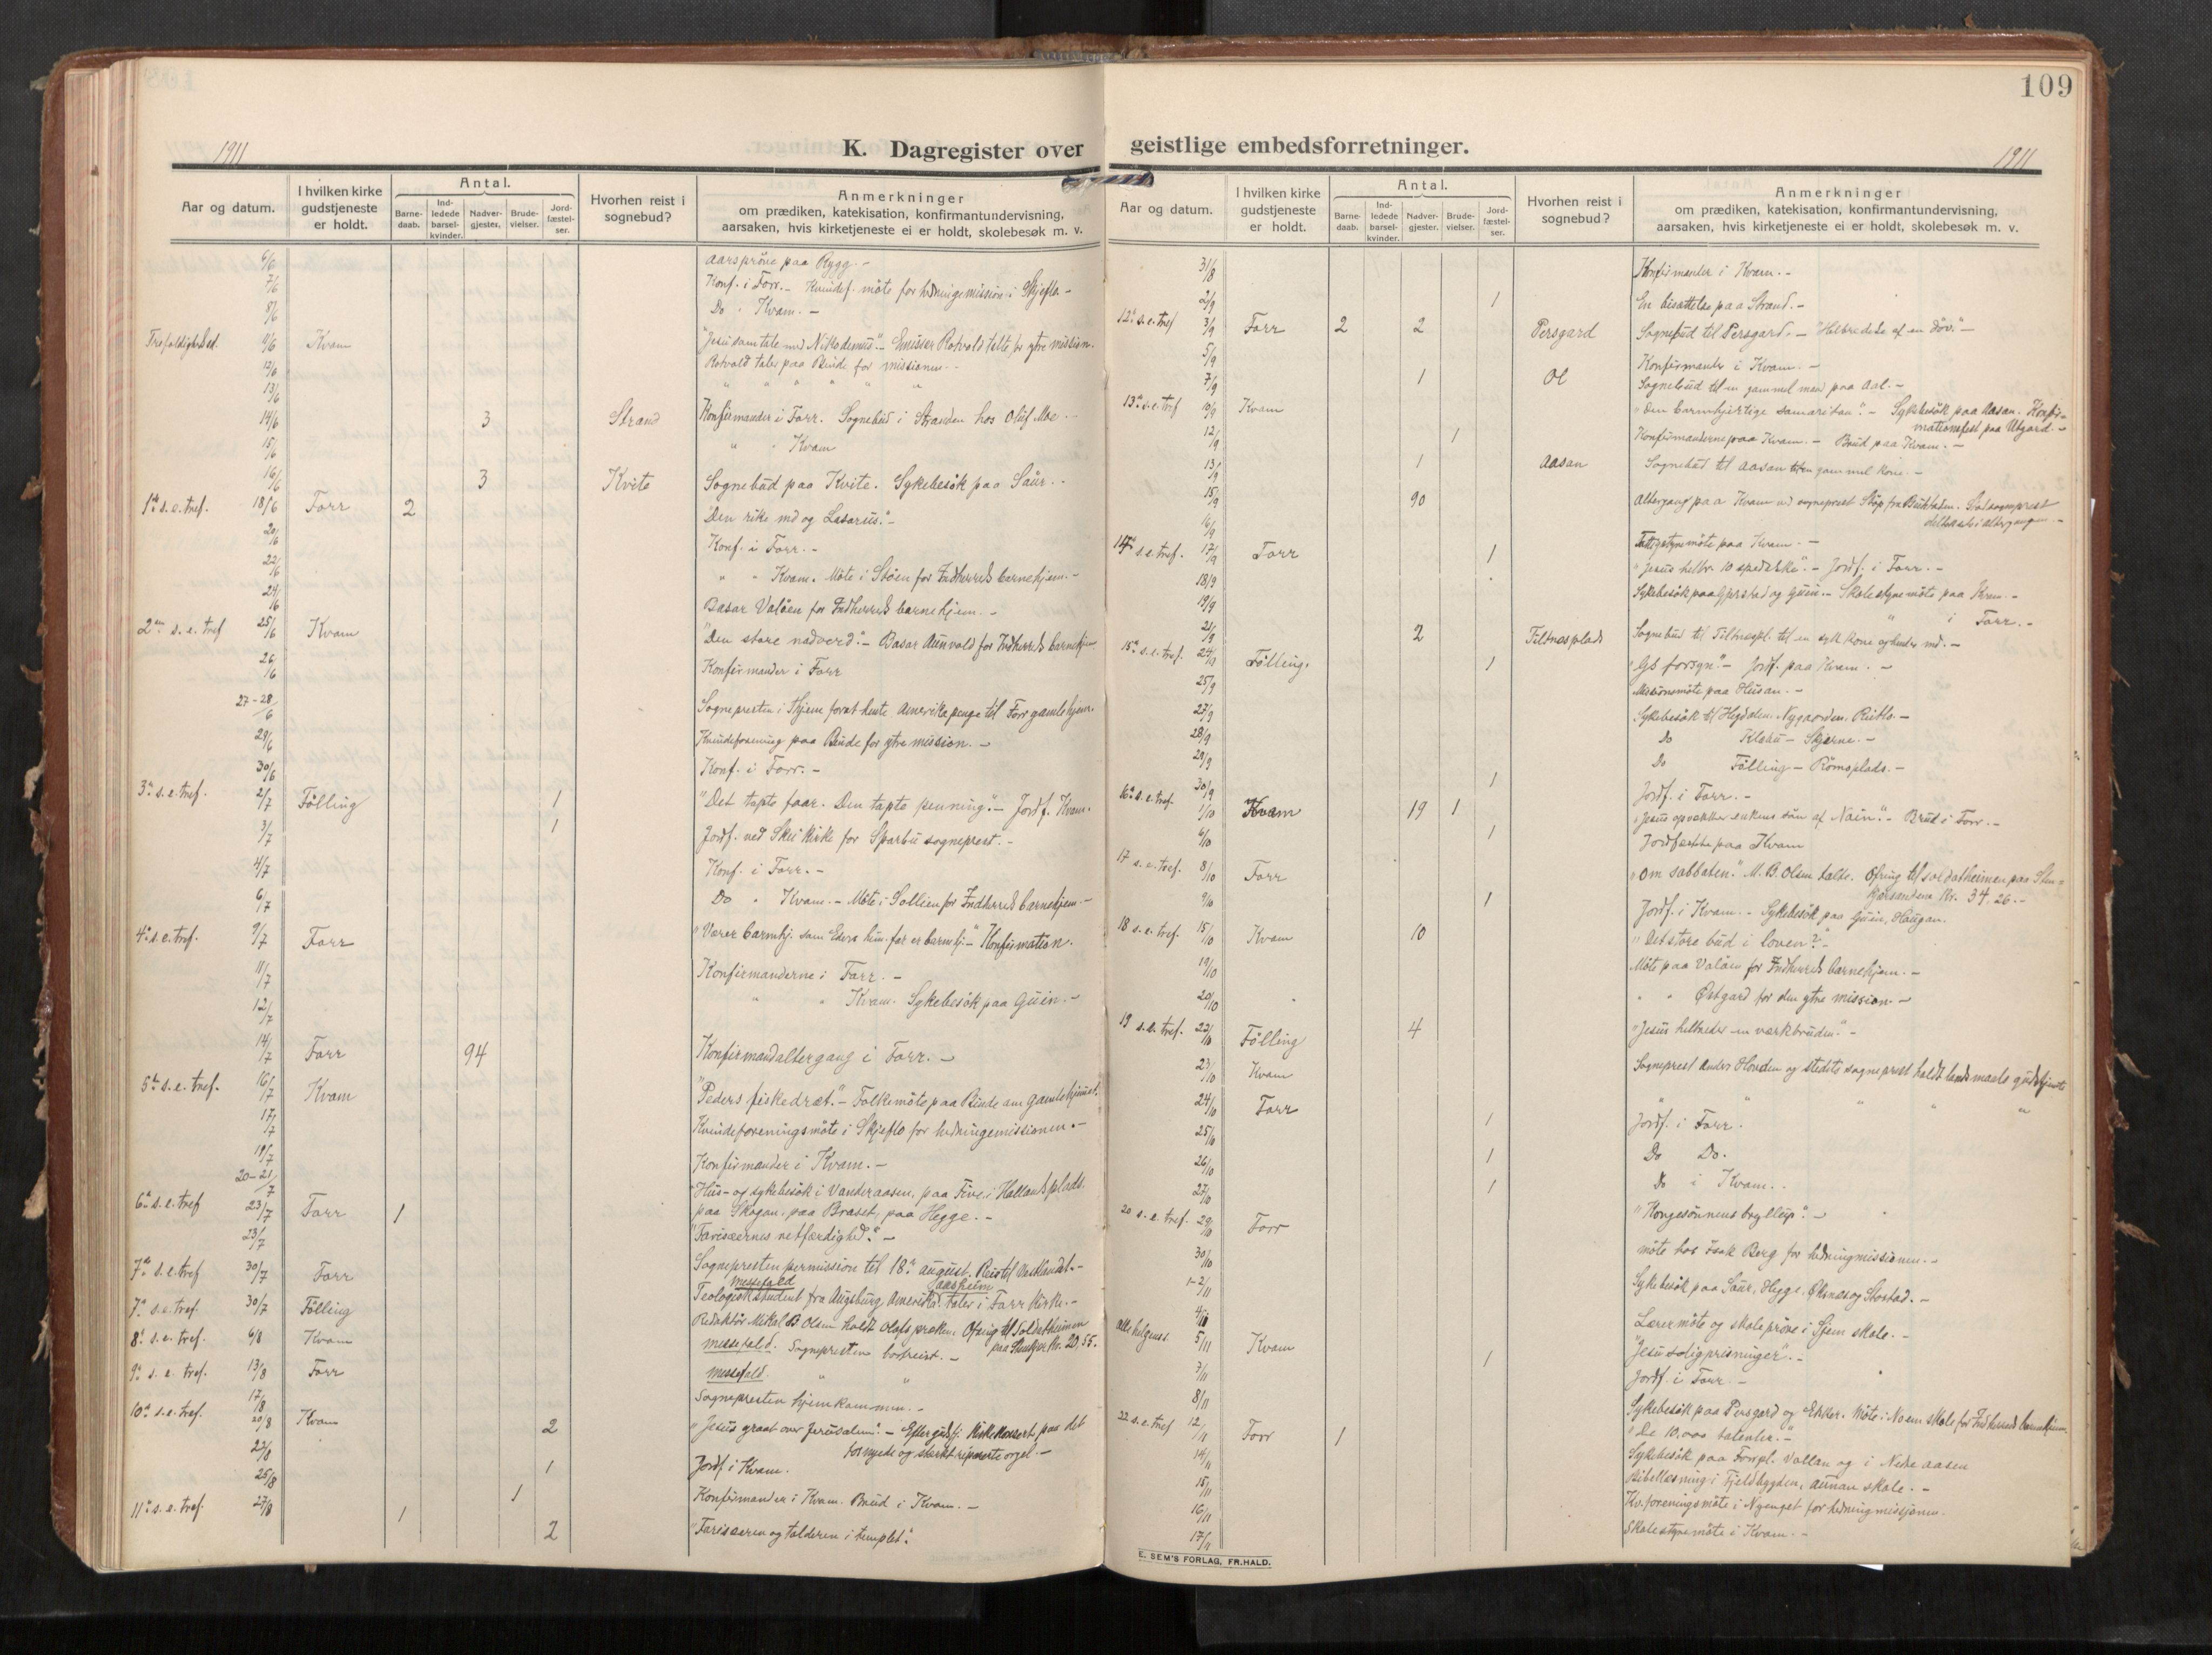 109
1911
K. Dagregister over
Aar og datum.
I hvilken kirke gudstjeneste er holdt.
Antal.
Barne-daab.
Ind-ledede barsel-kvinder.
Nadver-gjester.
Brude-vielser.
Jord-fæstel-ser.
Hvorhen reist i sognebud?
Anmerkninger
om prædiken, katekisation, konfirmantundervisning,
aarsaken, hvis kirketjeneste ei er holdt, skolebesøk m. v.
6/6 Aarspröve paa Rygg.-
7/6 Konf. i Forr.- Kvindef. möte for hedningemission i Skjeflo.-
8/6 Do " Kvam.-
Trefoldighedsd. 11/6 Kvam "Jesu samtale med Nikodemus".- Emissær Rotvold talte for ytre mission.
12/6 Rotvold taler paa Binde for missionen.-
13/6 " " " " " "
14/6 3 Strand Konfirmander i Forr. Sognebud i Stranden hos Oluf Moe.-
15/6 " " Kvam
16/6 3 Kvite Sognebud paa Kvite. Sykebesök paa Saur.-
1ste s.e.tref. 18/6 Forr 2 "Den rike md og Lasarus".-
20/6 Konf. i Forr.-
22/6 " " Kvam. Möte i Stöen for Indherreds barnehjem.-
24/6 Basar Valöen for Indherreds barnehjem.-
2den s.e.tref 25/6 Kvam "Den store nadverd".- Basar Aunvold for Indherreds barnehjem
26/6 Konfirmander i Forr
27-28/6 Sognepresten i Stjern forat hente Amerikapenge til Forr gamlehjem.
29/6 Kvindeforening paa Binde for ytre mission.-
30/6 Konf. i Forr.-
3die s.e.tref. 2/7 Fölling 1 "Det tapte faar. Den tapte penning".- Jordf. Kvam.
3/7 1 Jordf. ved Skei kirke for Sparbu sogneprest.-
4/7 Konf. i Forr.-
6/7 Do " Kvam.- Möte i Sollien for Indherreds barnehjem.-
4de s.e.tref. 9/7 Forr "Værer barmhj. som Eders him. far er barmhj.-" Konfirmation.
11/7 Konfirmanderne i Forr.-
12/7 " " Kvam. Sykebesök paa Guin.-
14/7 Forr 94 Konfirmandaltergang i Forr.-
5te s.e.tref. 16/7 Kvam "Peders fiskedræt".- Folkemöte paa Binde om gamlehjemmet.
17/7 Kvindeforeningsmöte i Skjeflo for hedningemissionen.-
19/7 Konfirmander i Kvam.-
20-21/7 Hus- og sykebesök i Vanderaasen, paa Five i Hallandsplads.
6te s.e.tref 23/7 Forr 1 paa Skogan, paa Braset, paa Hegge.-
23/7 "Farisæernes retfærdighed".-
7de s.e.tref 30/7 Forr Sognepresten permission til 18de august. Reist til Vestlandet.-
messefald
7de s.e.tref. 30/7 Fölling Teologisk student fra Augsburg Amerika taler i Forr kirke.-
Redaktör Mikal B Olsen holdt Olafs præken. Ofring til Soldatheimen
8de s.e.tref. 6/8 Kvam messefald. Sognepresten bortreist.- paa Stenkjær Kr. 20,55.
9de s.e.tref. 13/8 Forr messefald. " "
17/8 Sognepresten hjemkommen.-
10de s.e.tref. 20/8 Kvam 2 "Jesus graat over Jerusalem".- Efter gudstj. kirkekonsert paa det
fornyede og sterkt reparerte orgel.-
22/8 1 Jordf i Kvam.
25/8 1 Konfirmander i Kvam. Brud i Kvam.-
11te s.e.tref. 27/8 1 2 "Farisæeren og tolderen i templet".
geistlige embedsforretninger.
1911
Aar og datum.
I hvilken kirke gudstjeneste er holdt.
Antal.
Barne-daab.
Ind-ledede barsel-kvinder.
Nadver-gjester.
Brude-vielser.
Jord-fæstel-ser.
Hvorhen reist i sognebud?
Anmerkninger
om prædiken, katekisation, konfirmantundervisning,
aarsaken, hvis kirketjeneste ei er holdt, skolebesøk m. v.
31/8 Konfirmanter i Kvam.-
2/9 1 En bisættelse paa Strand.-
12te s.e.tref 3/9 Forr 2 2 Persgard Sognebud til Persgard.- "Helbredelse af en döv".-
5/9 Konfirmander i Kvam.-
7/9 1 Ol Sognebud til en gammel mand paa Aal.-
13de s.e.tref 10/9 Kvam "Den barmhjertige samaritan".- Sykebesök paa Aasan. Konfir-
mationsfest paa Utgard.-
12/9 1 Konfirmanderne paa Kvam.- Brud paa Kvam.-
13/9 1 Aasan Sognebud til Aasan til en gammel kone.-
15/9 90 Altergang paa Kvam ved sogneprest Stöp fra Beitstaden. Stedsognprest
deltok i altergangen.-
16/9 Fattigstyremöte paa Kvam.-
14de s.e.tref. 17/9 Forr 1 "Jesus helbr. 10 spedalske".- Jordf. i Forr.-
18/9 Sykebesök paa Gjerstad og Guin.- Skolestyremöte paa Kvam.-
19/9 " i Forr.-
21/9 2 Tiltnesplads Sognebud til Tiltnespl. til en syk kone og hendes md.-
15de s.e.tref. 24/9 Fölling. 1 "Gs forsyn".- Jordf. paa Kvam.-
25/9 Missionsmöte paa Husan.-
27/9 Sykebesök til Hegdalen. Nygaarden.
28/9 Do Klæbu - Skjerve.-
29/9 Do Fölling - Römoplads.-
30/9 1 Jordf. i Forr.-
16de s.e.tref. 1/10 Kvam 19 1 "Jesus opvækker enkens sön af Nain".- Brud i Forr.-
6/10 1 Jordfæstelse paa Kvam
17 s.e.tref. 8/10 Forr "Om sabbaten". M. B. Olsen talte. Ofring til soldatheimen paa Sten-
kjærsanden Kr. 34.26.-
9/10 1 Jordf. i Kvam.- Sykebesök paa Guin, Haugan.
18 s.e.tref. 15/10 Kvam 10 "Det store bud i loven?"
19/10 Möte paa Valöen for Indherreds barnehjem.-
20/10 " " Östgard for den ytre mission.-
19 s.e.tref. 22/10 Fölling 4 "Jesus helbreder en værkbruden".-
23/10 Kvam Sogneprest Anders Hovden og stedets sogneprest holdt landsmaals gudstjeneste
24/10 Forr " " " " "
25/10 1 Jordf. i Forr.
26/10 1 Do Do.
27/10 1 Do i Kvam.
20 s.e.tref. 29/10 Forr "Kongesönnens bryllup".-
30/10 möte hos Isak Berg for hedningmissionen.-
1-2/11 Sykebesök paa Saur, Hegge, Öksnes og Stostad.-
4/11 Lærermöte og skolepröve i Gjem skole.-
Allehelgens 5/11 Kvam "Jesu saligprisninger".-
7/11 1 Jordf. i Forr.-
8/11 Sykebesök paa Persgard og Ekker. Möte i Noem skole for Indherreds barnehjem.
22 s.e.tref 12/11 Forr 1 "De 10.000 talenter.-"
14/11 Sykebesök paa Forrpl. Vollan og i Nedre Aasen
15/11 Bibellæsning i Fjeldbygden, Aunan skole.-
16/11 Kv.foreningsmöte i Nyenget for hedningmissjonen.
17/11 Skolestyremöte i Kvam.-
E. SEM'S FORLAG, FR.HALD.